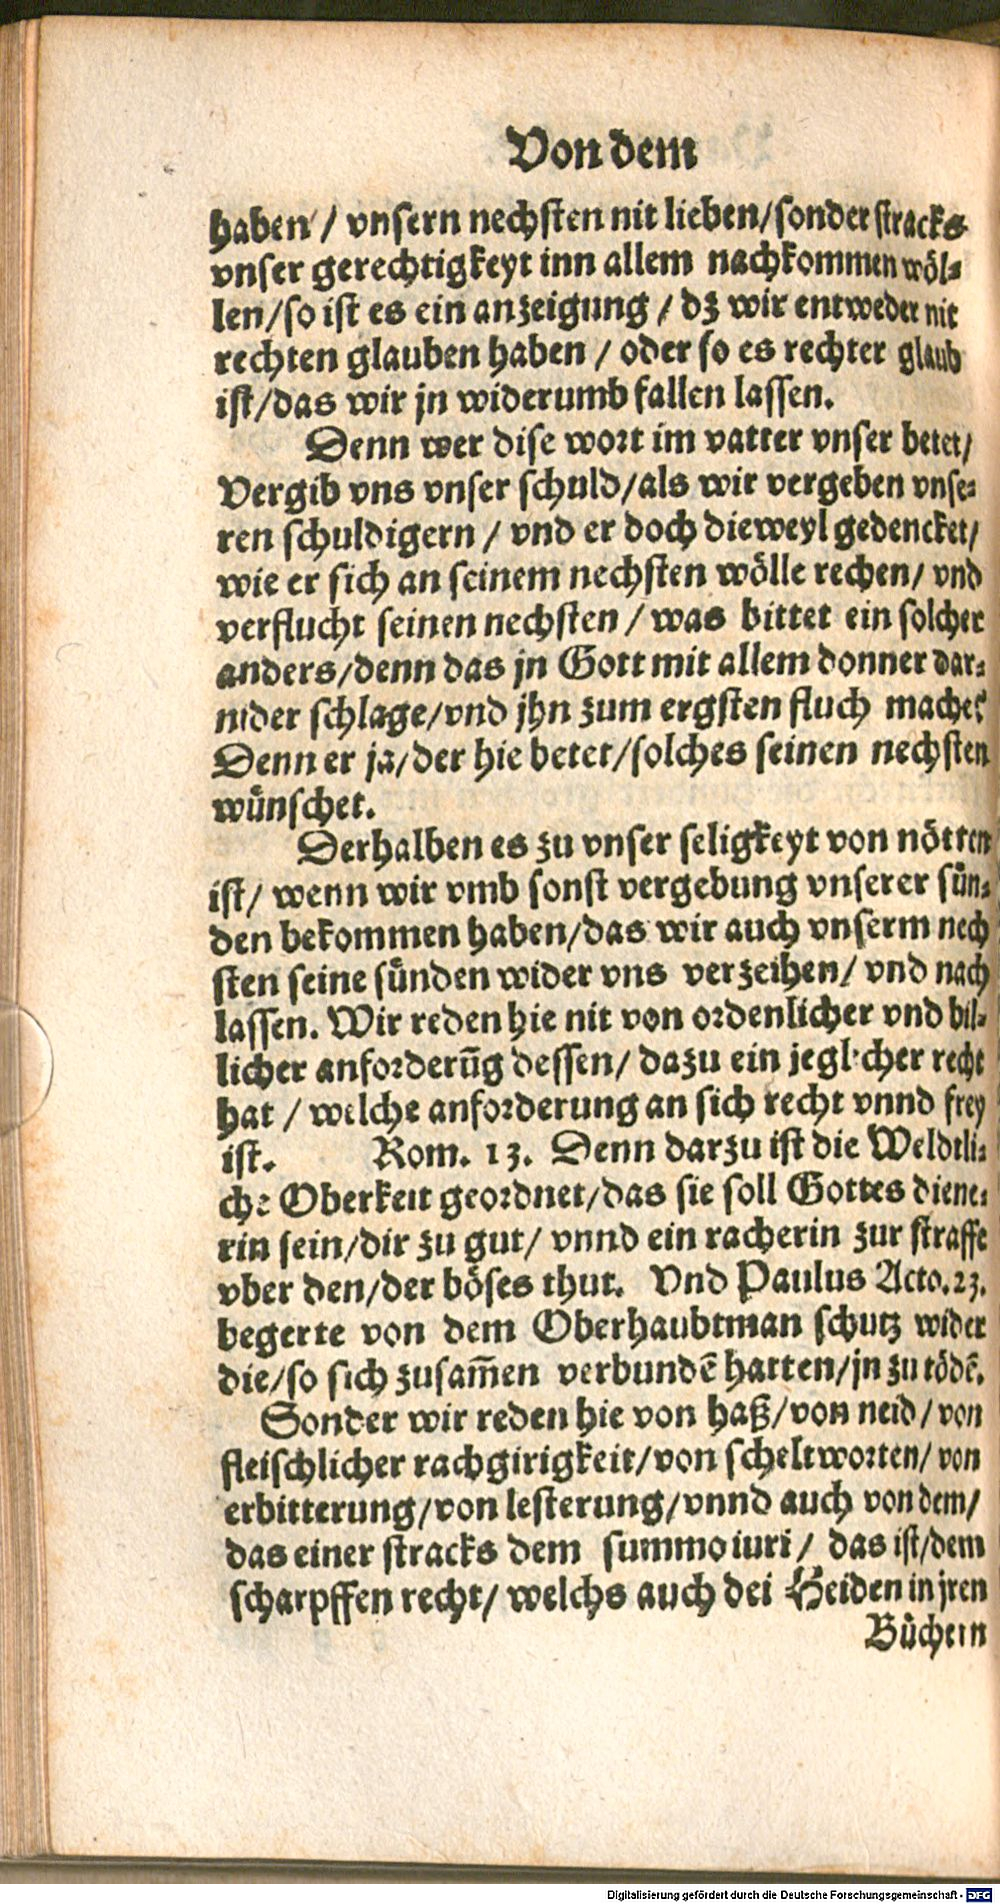 Von dem
haben / vnsern nechsten nit lieben/sonder stracks
vnser gerechtigkeyt inn allem nachkommen wöl-
len/so ist es ein anzeigung / dz wir entweder nit
rechten glauben haben / oder so es rechter glaub
ist/das wir jn widerumb fallen lassen.
Denn wer dise wort im vatter vnser betet/
Vergib vns vnser schuld/als wir vergeben vnse-
ren schuldigern / vnd er doch dieweyl gedencket/
wie er sich an seinem nechsten wölle rechen/ vnd
verflucht seinen nechsten / was bittet ein solcher
anders/denn das jn Gott mit allem donner dar-
nider schlage/vnd jhn zum ergsten fluch mache?
Denn er ja/der hie betet/solches seinen nechsten
wünschet.
Derhalben es zu vnser seligkeyt von nötten
ist/ wenn wir vmb sonst vergebung vnserer sün-
den bekommen haben/das wir auch vnserm nech
sten seine sünden wider vns verzeihen/ vnd nach
lassen. Wir reden hie nit von ordenlicher vnd bil-
licher anforderūg dessen/ dazu ein jeglicher recht
hat / welche anforderung an sich recht vnnd frey
ist. Rom. 13. Denn darzu ist die Weldtli-
che Oberkeit geordnet/das sie soll Gottes diene-
rin sein/dir zu gut/ vnnd ein racherin zur straffe
vber den/der böses thut. Vnd Paulus Acto.23.
begerte von dem Oberhaubtman schutz wider
die/so sich zusam̄en verbundē hatten/jn zu tödē.
Sonder wir reden hie von haß/von neid/von
fleischlicher rachgirigkeit/von scheltworten/ von
erbitterung/von lesterung/vnnd auch von dem/
das einer stracks dem summo iuri / das ist/dem
scharpffen recht/ welchs auch dei Heiden in jren
Büchern
Digitalisierung gefördert durch die Deutsche Forschungsgemeinschaft - DFG